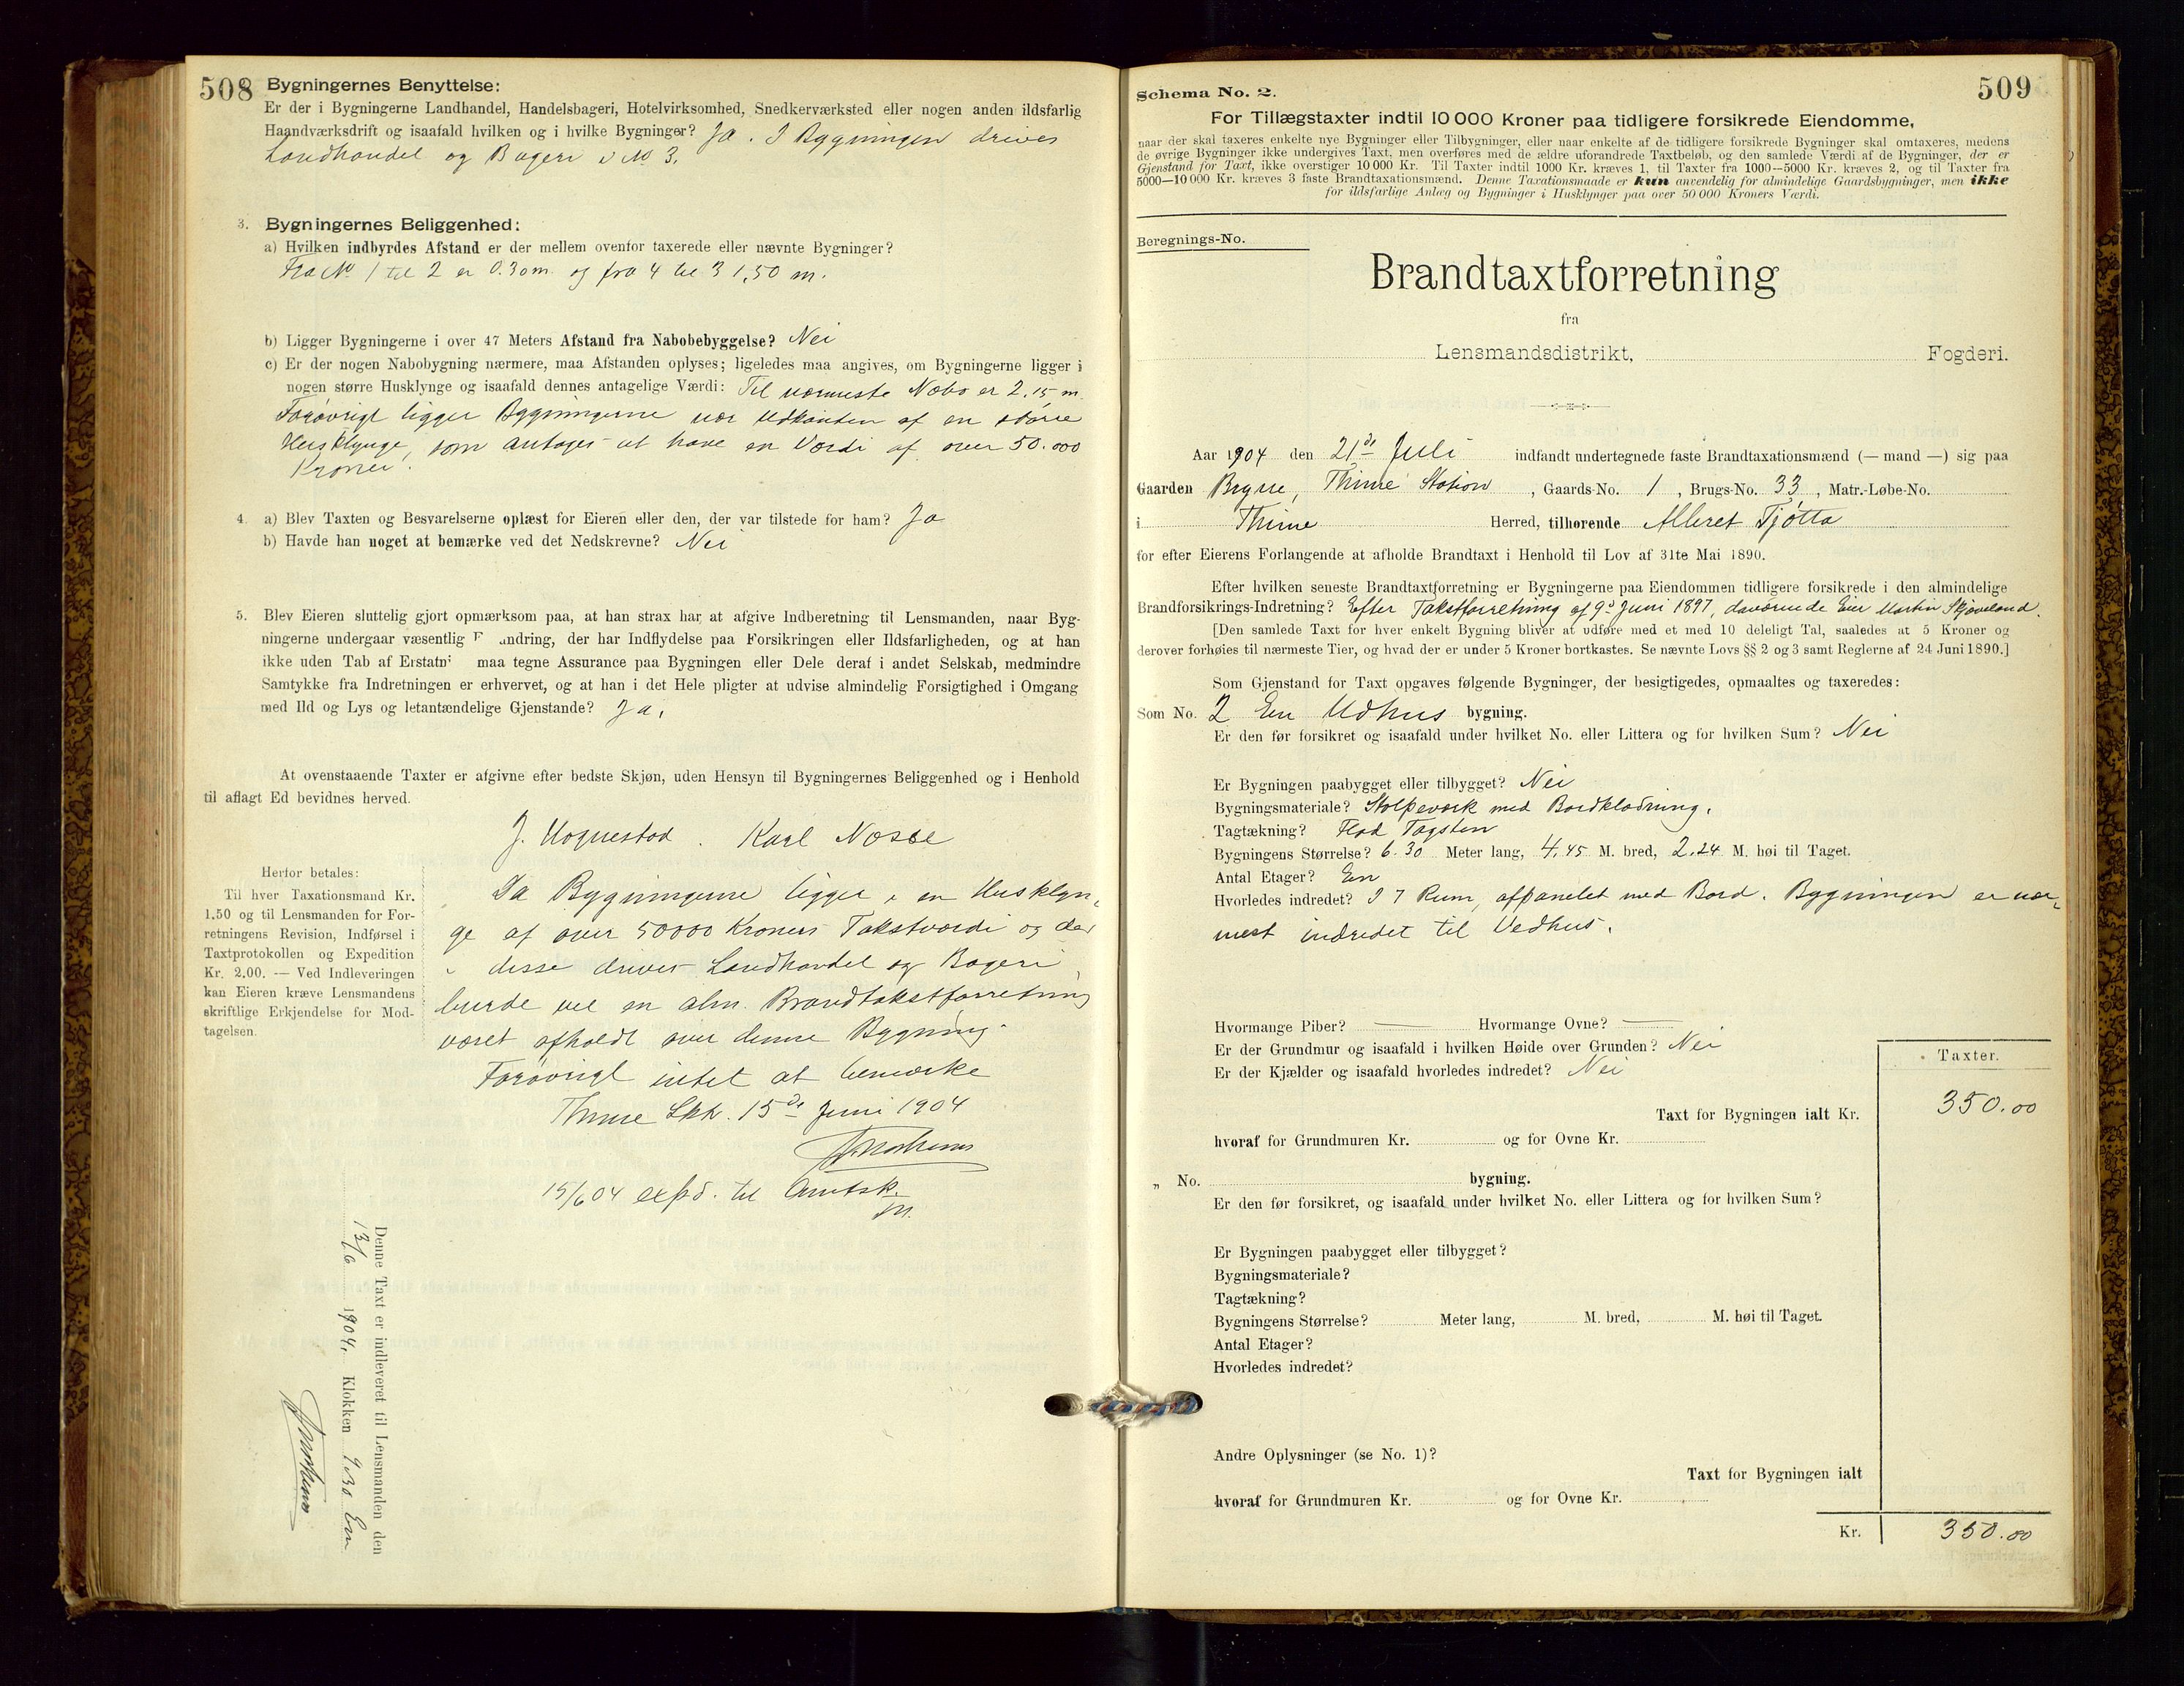 508
Bygningernes Benyttelse:
Er der i Bygningerne Landhandel, Handelsbageri, Hotelvirksomhed, Snedkerværksted eller nogen anden ildsfarlig
Haandværksdrift og isaafald hvilken og i hvilke Bygninger? Ja. I Bygningen drives
Landhandel og Bageri i No 3.
3. Bygningernes Beliggenhed:
a) Hvilken indbyrdes Afstand er der mellem ovenfor taxerede eller nævnte Bygninger?
Fra No 1 til 2 er 0.30 m. og fra 4 til 3 1,50 m.
b) Ligger Bygningerne i over 47 Meters Afstand fra Nabobebyggelse? Nei
c) Er der nogen Nabobygning nærmere, maa Afstanden oplyses; ligeledes maa angives, om Bygningerne ligger i
nogen større Husklynge og isaafald dennes antagelige Værdi: Til nærmeste Nabo er 2,15 m.
Forøvrigt ligger Bygningerne nær Udkanten af en større
Husklynge, som antages at have en Værdi af over 50.000
Kroner.
4. a) Blev Taxten og Besvarelserne oplæst for Eieren eller den, der var tilstede for ham? Ja
b) Havde han noget at bemærke ved det Nedskrevne? Nei
5. Blev Eieren sluttelig gjort opmærksom paa, at han strax har at afgive Indberetning til Lensmanden, naar Byg-
ningerne undergaar væsentlig F andring, der har Indflydelse paa Forsikringen eller Ildsfarligheden, og at han
ikke uden Tab af Erstatn maa tegne Assurance paa Bygningen eller Dele deraf i andet Selskab, medmindre
Samtykke fra Indretningen er erhvervet, og at han i det Hele pligter at udvise almindelig Forsigtighed i Omgang
med Ild og Lys og letantændelige Gjenstande? Ja,
At ovenstaaende Taxter er afgivne efter bedste Skjøn, uden Hensyn til Bygningernes Beliggenhed og i Henhold
til aflagt Ed bevidnes herved.
J. Hognestad. Karl Næsse
Herfor betales:
Til hver Taxationsmand Kr.
1.50 og til Lensmanden for For-
retningens Revision, Indførsel i
Taxtprotokollen og Expedition
Kr. 2.00. — Ved Indleveringen
kan Eieren kræve Lensmandens
skriftlige Erkjendelse for Mod-
tagelsen.
Da Bygningerne ligger i en Husklyn-
ge af over 50000 Kroners Takstværdi og der
i disse drives Landhandel og Bageri,
burde vel en alm. Brandtakstforretning
været afholdt over denne Bygning.
Forøvrigt intet at bemærke
Thime Lkr. 15de Juni 1904
15/6 04 exped. til Amtsk.
Denne Taxt er indleveret til Lensmanden den
13/6 1904, Klokken 9.30 Em
509
Schema No. 2.
For Tillægstaxter indtil 10 000 Kroner paa tidligere forsikrede Eiendomme,
naar der skal taxeres enkelte nye Bygninger eller Tilbygninger, eller naar enkelte af de tidligere forsikrede Bygninger skal omtaxeres, medens
de øvrige Bygninger ikke undergives Taxt, men overføres med de ældre uforandrede Taxtbeløb, og den samlede Værdi af de Bygninger, der er
Gjenstand for Taxt, ikke overstiger 10 000 Kr. Til Taxter indtil 1000 Kr. kræves 1, til Taxter fra 1000—5000 Kr. kræves 2, og til Taxter fra
5000—10 000 Kr. kræves 3 faste Brandtaxationsmænd. Denne Taxationsmaade er kun anvendelig for almindelige Gaardsbygninger, men ikke
for ildsfarlige Anlæg og Bygninger i Husklynger paa over 50 000 Kroners Værdi.
Beregnings-No.
Brandtaxtforretning
fra
Lensmandsdistrikt, Fogderi.
Aar 1904 den 21de Juli indfandt undertegnede faste Brandtaxationsmænd (— mand —) sig paa
Gaarden Bryne, Thime Station, Gaards-No. 1, Brugs-No. 33, Matr.-Løbe-No.
i Thime Herred, tilhørende Albret Tjøtta
for efter Eierens Forlangende at afholde Brandtaxt i Henhold til Lov af 31te Mai 1890.
Efter hvilken seneste Brandtaxtforretning er Bygningerne paa Eiendommen tidligere forsikrede i den almindelige
Brandforsikrings-Indretning? Efter Takstforretning af 9de Juni 1897, daværende Eier Martin Skjæveland.
[Den samlede Taxt for hver enkelt Bygning bliver at udføre med et med 10 deleligt Tal, saaledes at 5 Kroner og
derover forhøies til nærmeste Tier, og hvad der er under 5 Kroner bortkastes. Se nævnte Lovs §§ 2 og 3 samt Reglerne af 24 Juni 1890.]
Som Gjenstand for Taxt opgaves følgende Bygninger, der besigtigedes, opmaaltes og taxeredes:
Som No. 2 En Udhus bygning.
Er den før forsikret og isaafald under hvilket No. eller Littera og for hvilken Sum? Nei
Er Bygningen paabygget eller tilbygget? Nei
Bygningsmateriale? Stolpeværk med Bordklædning.
Tagtækning? Flad Tagsten
Bygningens Størrelse? 6.30 Meter lang, 4,45 M. bred, 2.24 M. høi til Taget.
Antal Etager? En
Hvorledes indredet? I 7 Rum, afpanelet med Bord. Bygningen er nær-
mest indredet til Vedhus.
Hvormange Piber? — Hvormange Ovne? —
Er der Grundmur og isaafald i hvilken Høide over Grunden? Nei
Er der Kjælder og isaafald hvorledes indredet? Nei
Taxter.
Taxt for Bygningen ialt Kr. 350.00
hvoraf for Grundmuren Kr. og for Ovne Kr.
„ No. bygning.
Er den før forsikret, og isaafald under hvilket No. eller Littera og for hvilken Sum?
Er Bygningen paabygget eller tilbygget?
Bygningsmateriale?
Tagtækning?
Bygningens Størrelse? Meter lang, M. bred, M. høi til Taget.
Antal Etager?
Hvorledes indredet?
Andre Oplysninger (se No. 1)?
Taxt for Bygningen ialt
hvoraf for Grundmuren Kr. og for Ovne Kr.
Kr. 350.00